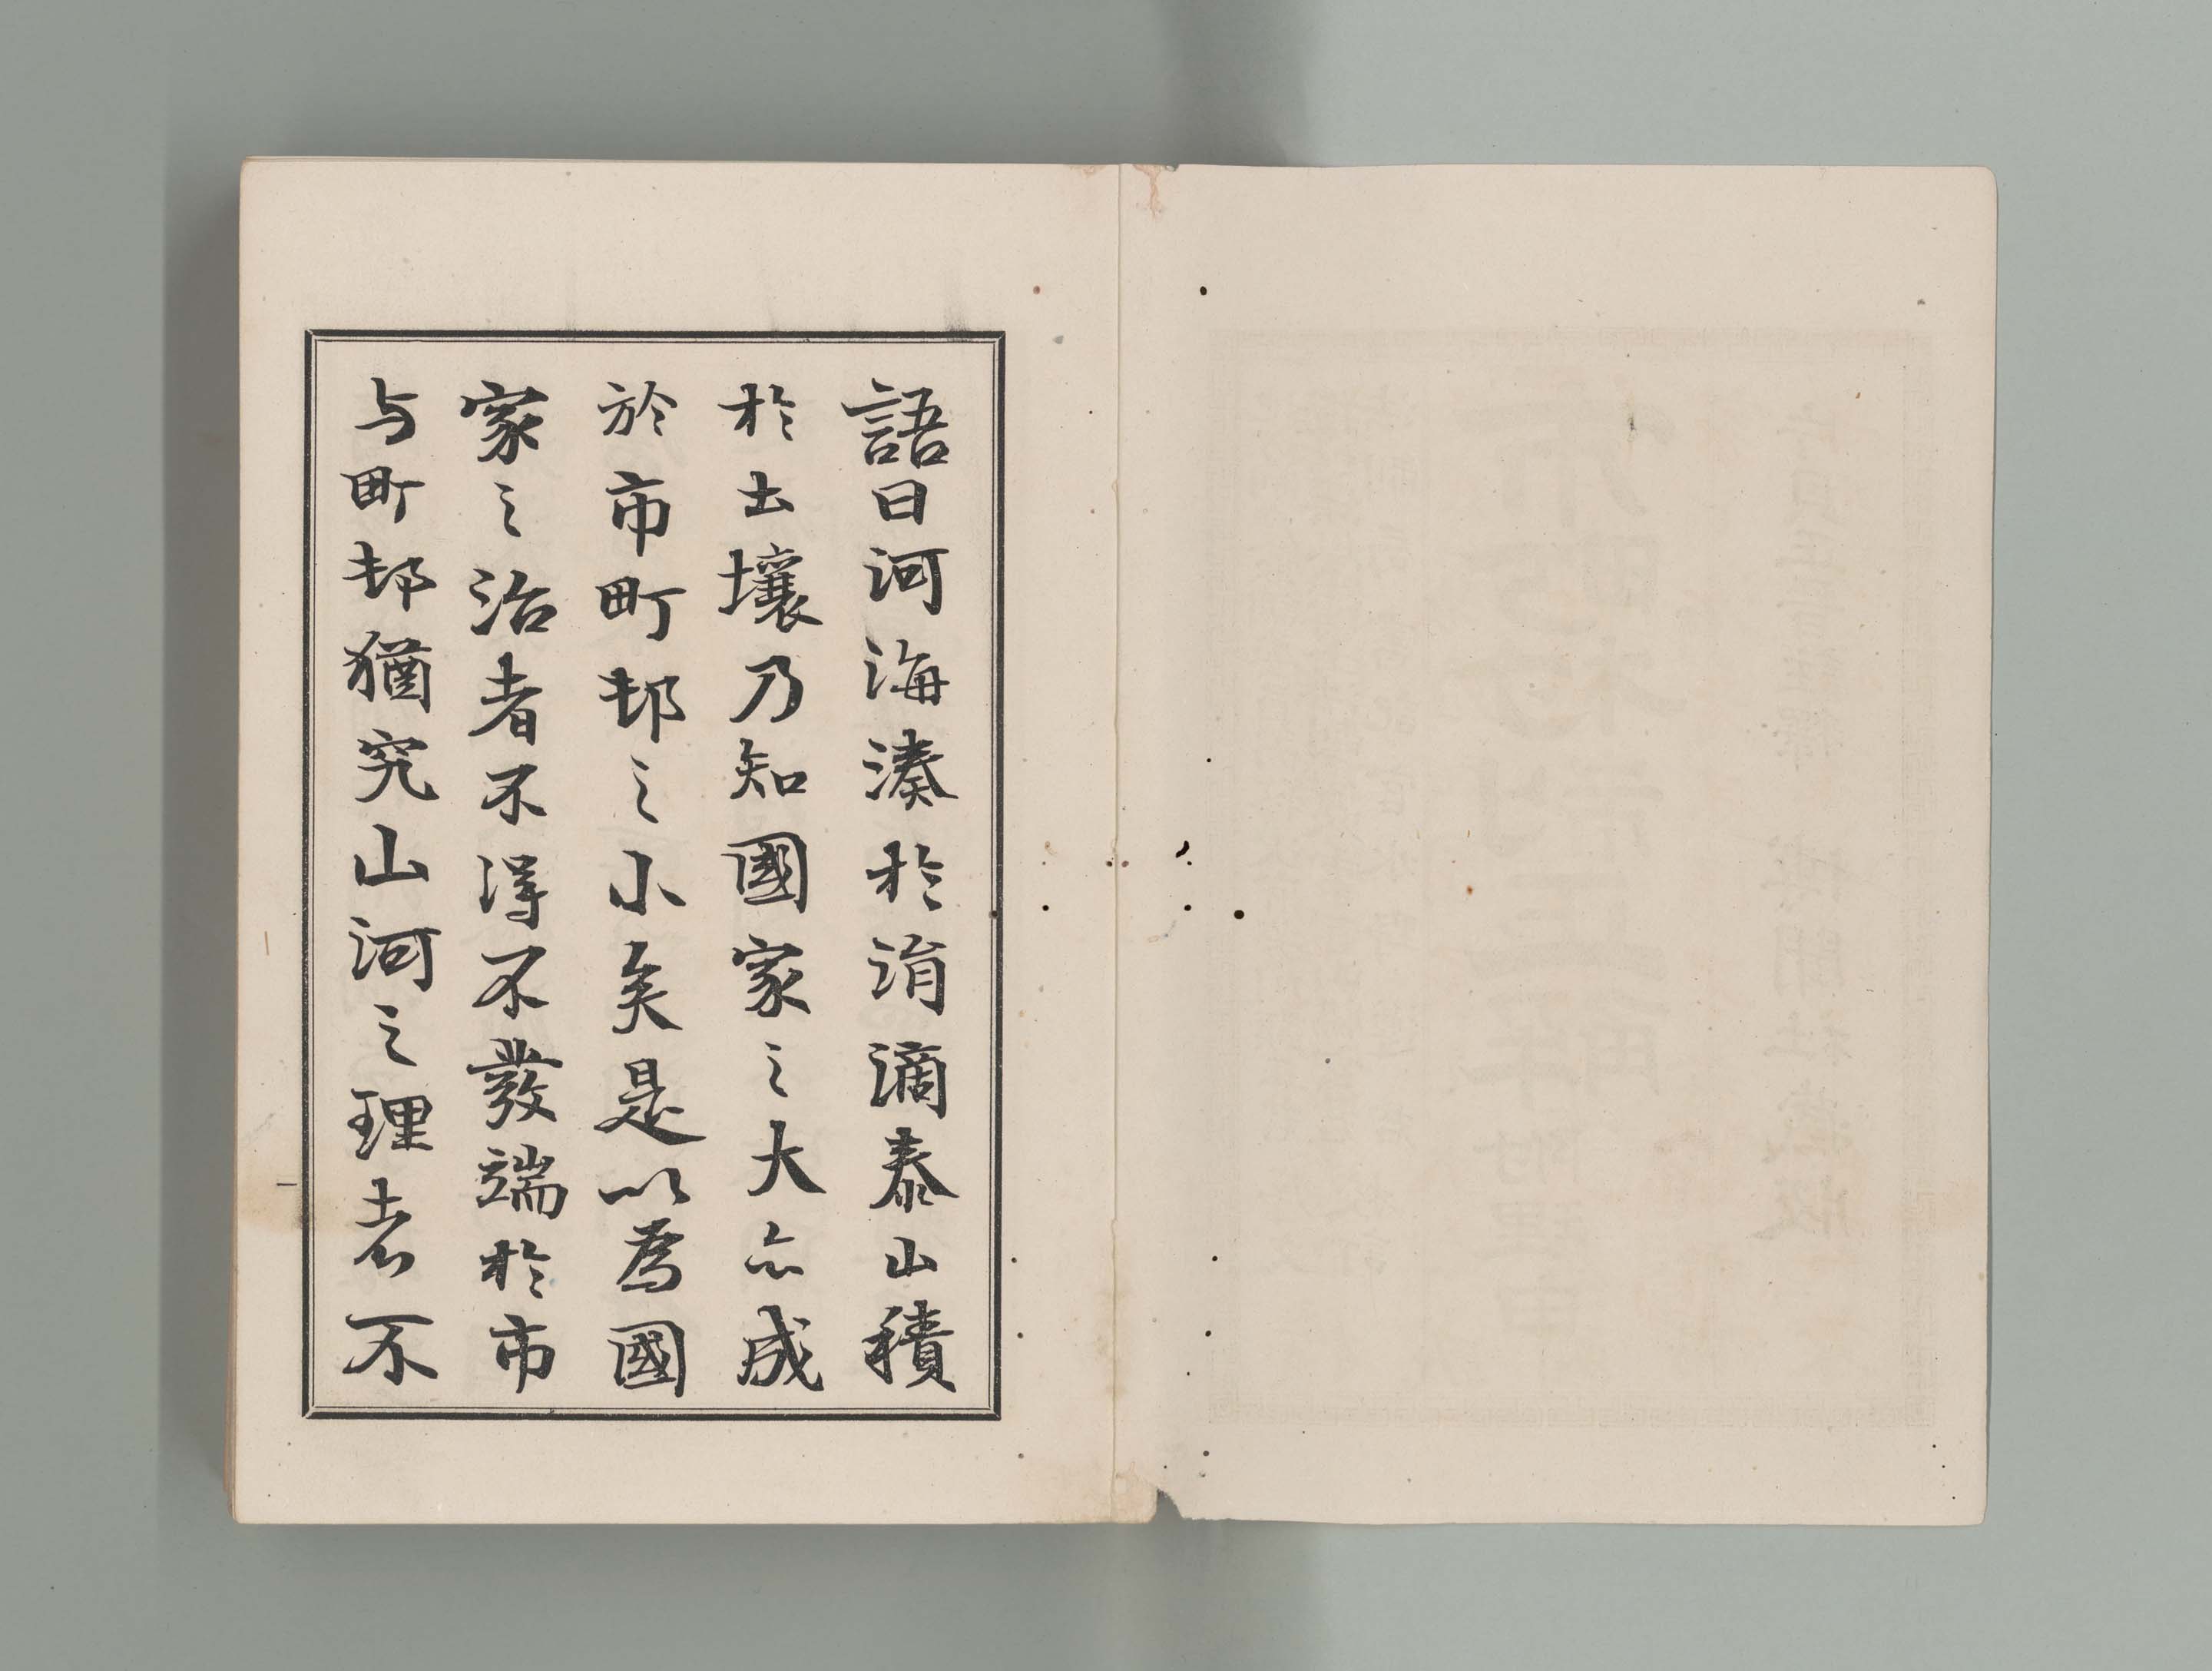 語曰河海湊於涓滴泰山積
於土壤乃知國家之大亦成
於市町邨之小矣是以為國
家之治者不得不發端於市
与町邨猶究山河之理者不